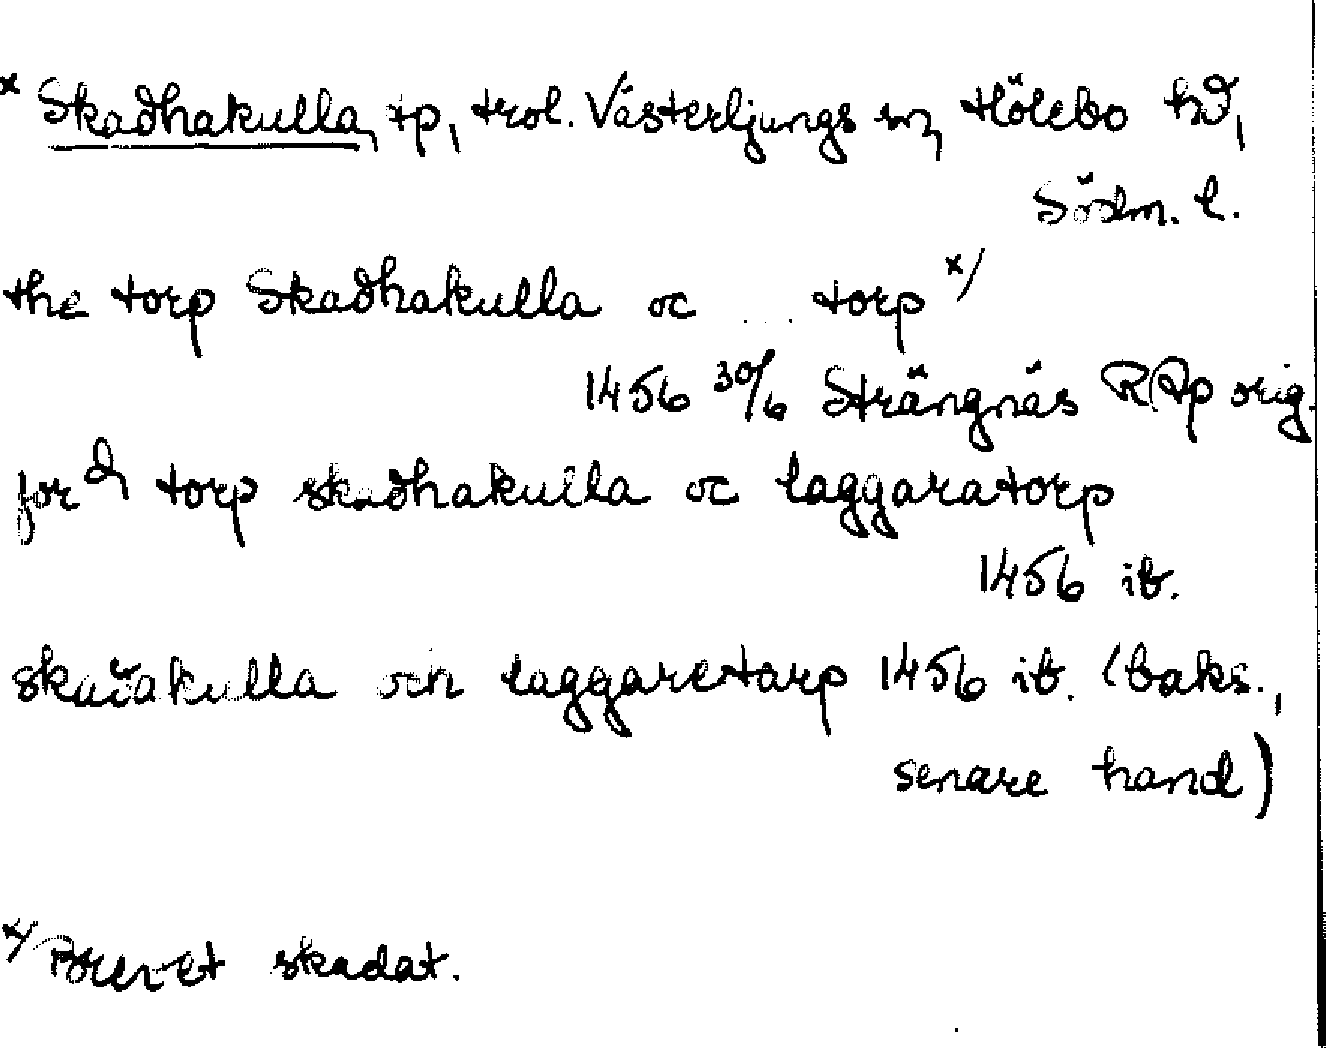 x Skadhakulla, tp, trol. Västerljungs sn, Hölebo hd,
Södm. l.
the torp Skadhakulla oc ... torp x/
1456 30/6 Strängnäs RAp orig.
for d torp skadhakulla oc laggaratorp
1456 ib.
skadakulla och laggaretorp 1456 ib. (baks.,
senare hand)
x/ Brevet skadat.